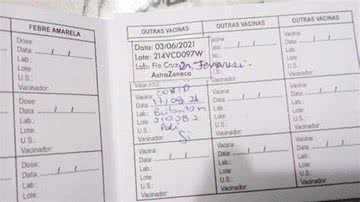 FEBRE AMARELA
Dose:
Data: / /
Lab:
Lote:
U.S.:
Vacinador:
Dose:
Data: / /
Lab.:
Lote:
U.S.:
Vacinador:
Dose:
Data: / /
Lab.:
Lote:
OUTRAS VACINAS
Data: 03/06/2021
Lote: 214VCD097W
Lab.: Fio Cruz
AstraZeneca
Data:
Lab.:
Lote:
U.S.:
Vacinador:
Vacina:
Data: / /
Lab.:
Lote:
U.S.:
Vacinador:
OUTRAS VACINAS
Vacina:
Data: / /
Lote:
U.S.:
Vacinador:
Vacina:
Data: / /
Lab.:
Lote:
U.S.:
Vacinador:
Vacina:
Data: / /
Lab.:
Lote:
U.S.:
Vacinador:
OUTRAS VACINAS
Vacina:
Data: / /
Lab.:
Lote:
U.S.:
Vacinador:
Vacina:
Data: / /
Lab.:
Lote:
U.S.:
Vacinador:
Vacina:
Data: / /
Lab.:
Lote:
U.S.:
Vacinador: